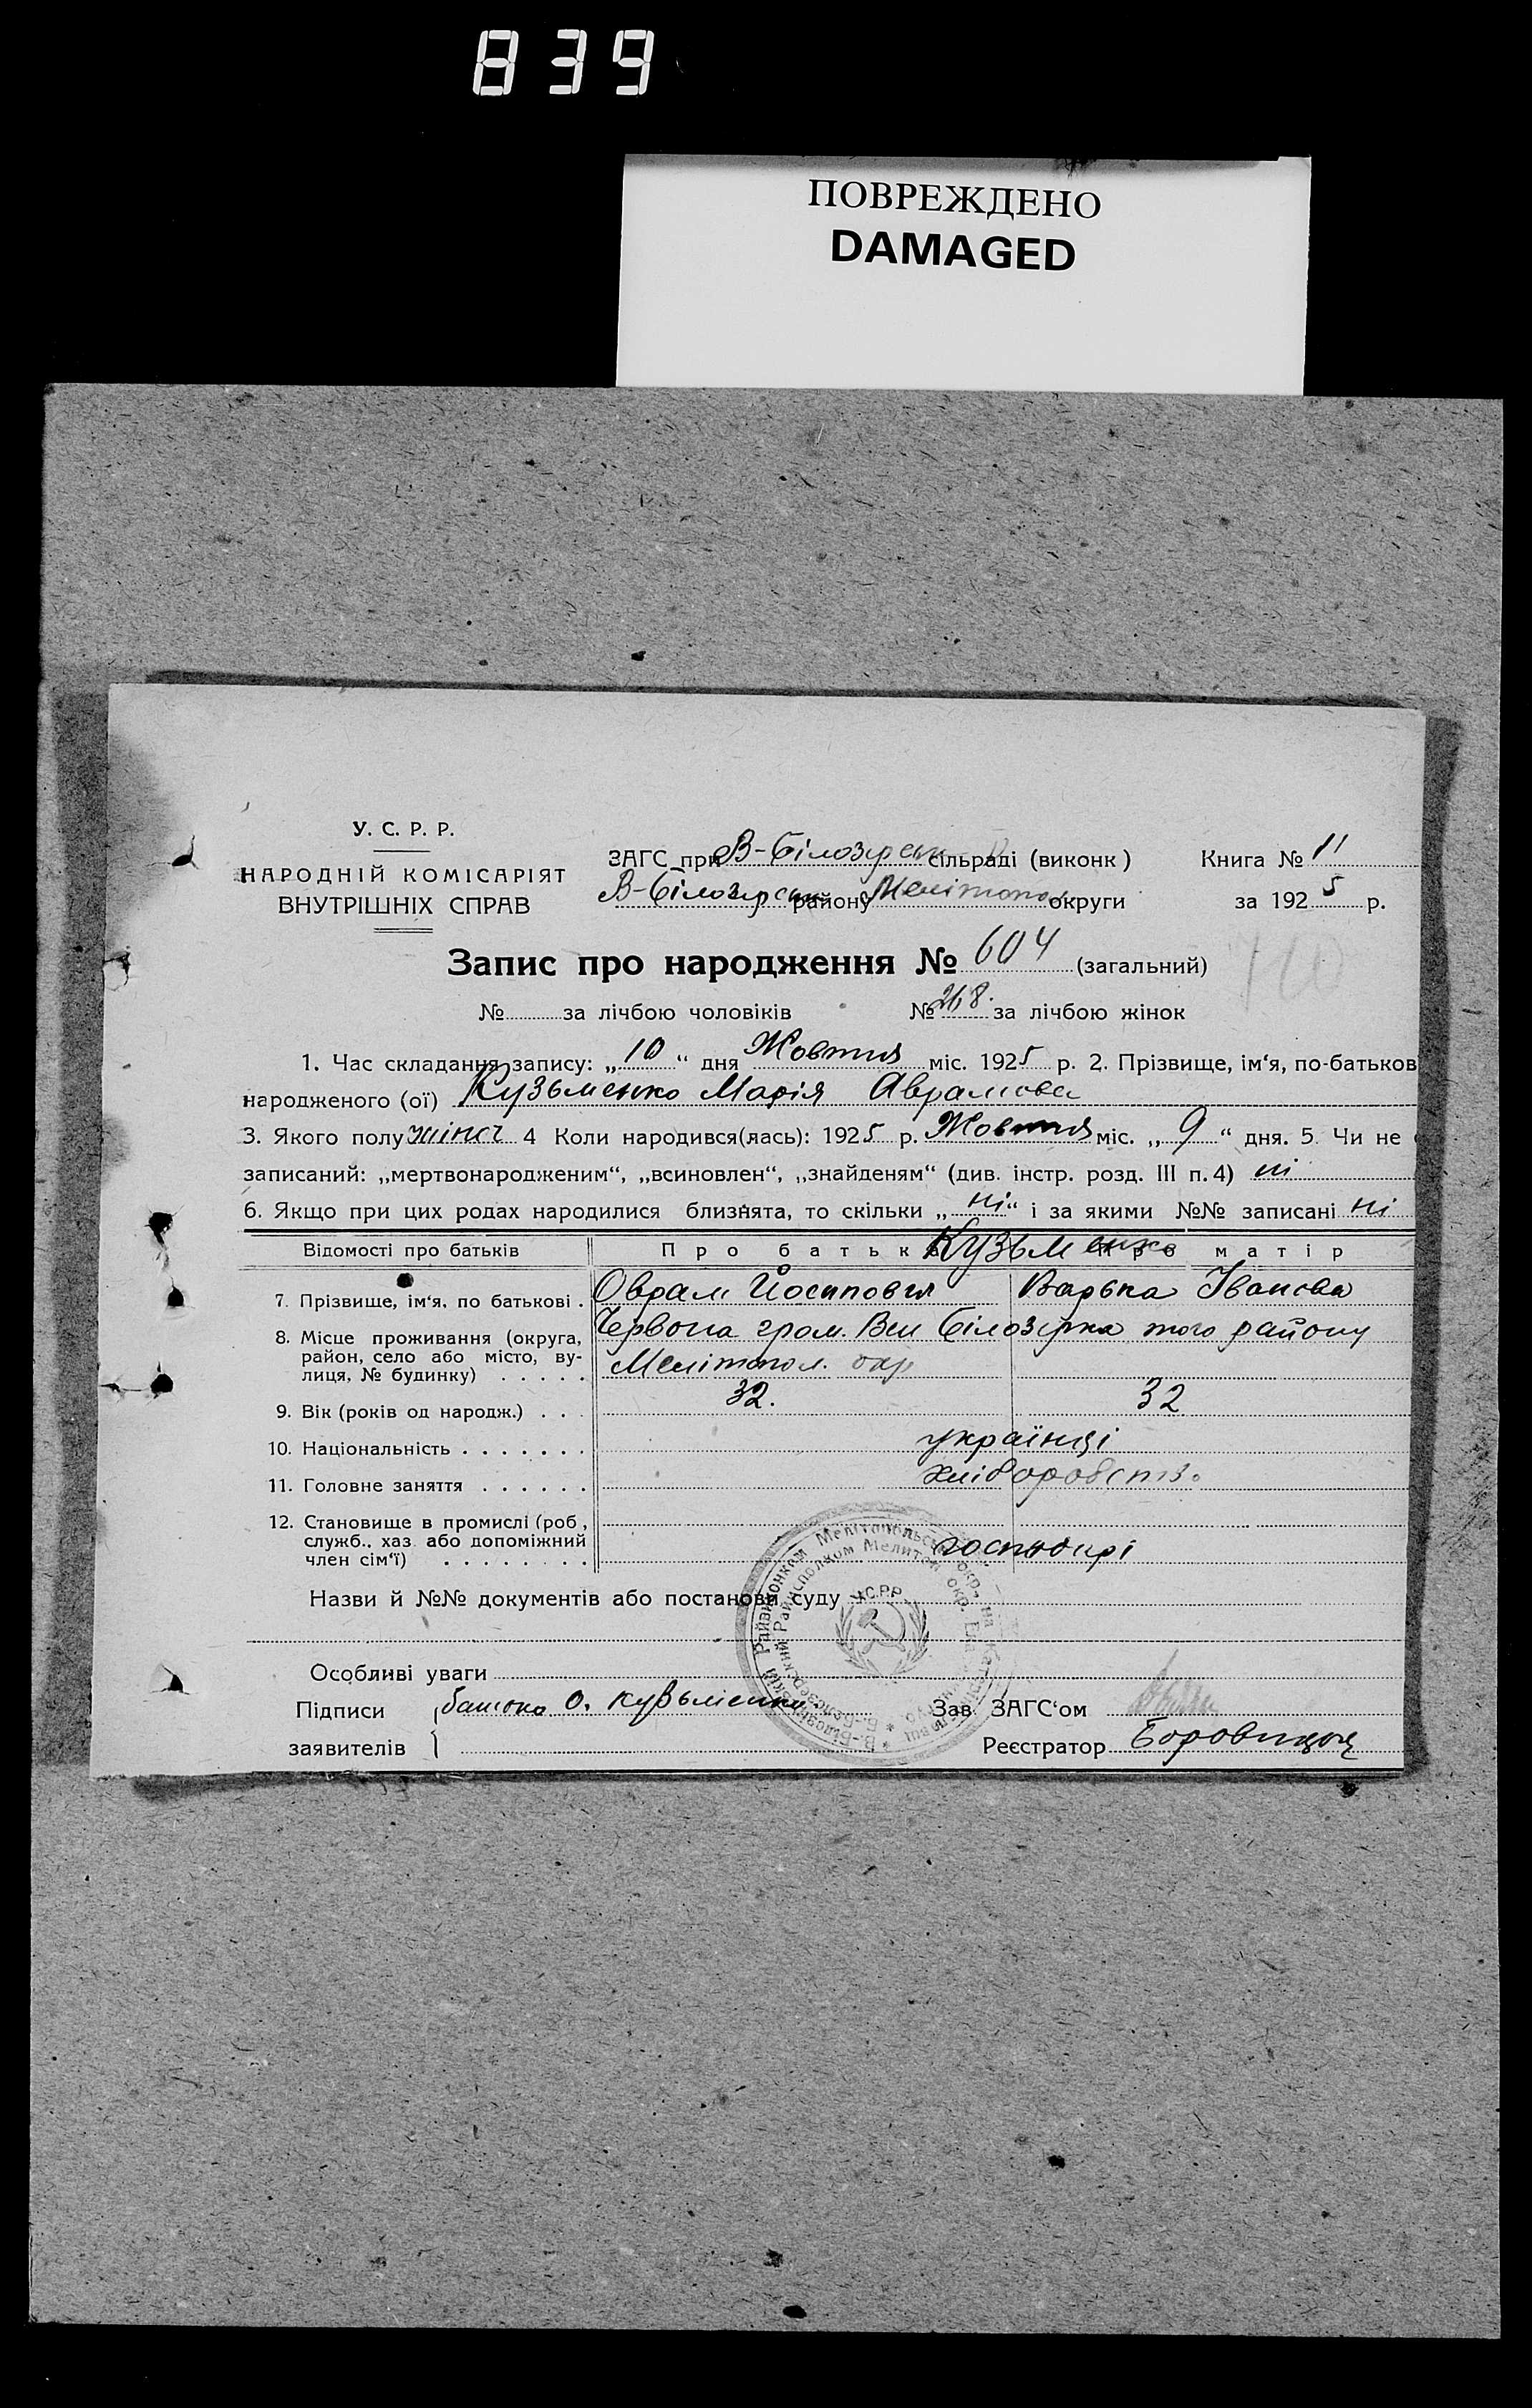 839
ПОВРЕЖДЕНО
DAMAGED
У. С. Р. Р.
НАРОДНІЙ КОМІСАРІЯТ
ВНУТРІШНІХ СПРАВ
ЗАГС при В-Білозерськ сільраді (виконк)
В-Білозерськ району Мелітопо округи
Книга № 11
за 1925 р.
Запис про народження № 604 (загальний)
710
№ за лічбою чоловіків № 268. за лічбою жінок
1. Час складання запису: „10“ дня Жовтня міс. 1925 р. 2. Прізвище, ім‘я, по-батьков
народженого (ої) Кузьменко Марія Аврамова
3. Якого полу жіноч 4 Коли народився(лась): 1925 р. Жовтня міс. „9“ дня. 5. Чи не
записаний: „мертвонародженим“, „всиновлен“, „знайденям“ (див. інстр. розд. III п. 4) ні
6. Якщо при цих родах народилися близнята, то скільки „ні“ і за якими №№ записані ні
Відомості про батьків Про батька Кузьменко Про матір
7. Прізвище, ім‘я, по батькові . Оврам Йосипович Варька Іванова
8. Місце проживання (округа, Червона гром. Вел Білозірка того району
район, село або місто, ву- Мелітопол. окр
лиця, № будинку) . . . . .
9. Вік (років од народж.) . . . 32. 32
10. Національність . . . . . . . українці
11. Головне заняття . . . . . . хліборобств.
12. Становище в промислі (роб.,
служб., хаз. або допоміжний господарі
член сім‘ї) . . . . . . . .
Назви й №№ документів або постанови суду
У.С.Р.Р.
Особливі уваги
Підписи батька О. Кузьменко Зав. ЗАГС‘ом
заявителів Реєстратор Боровицы